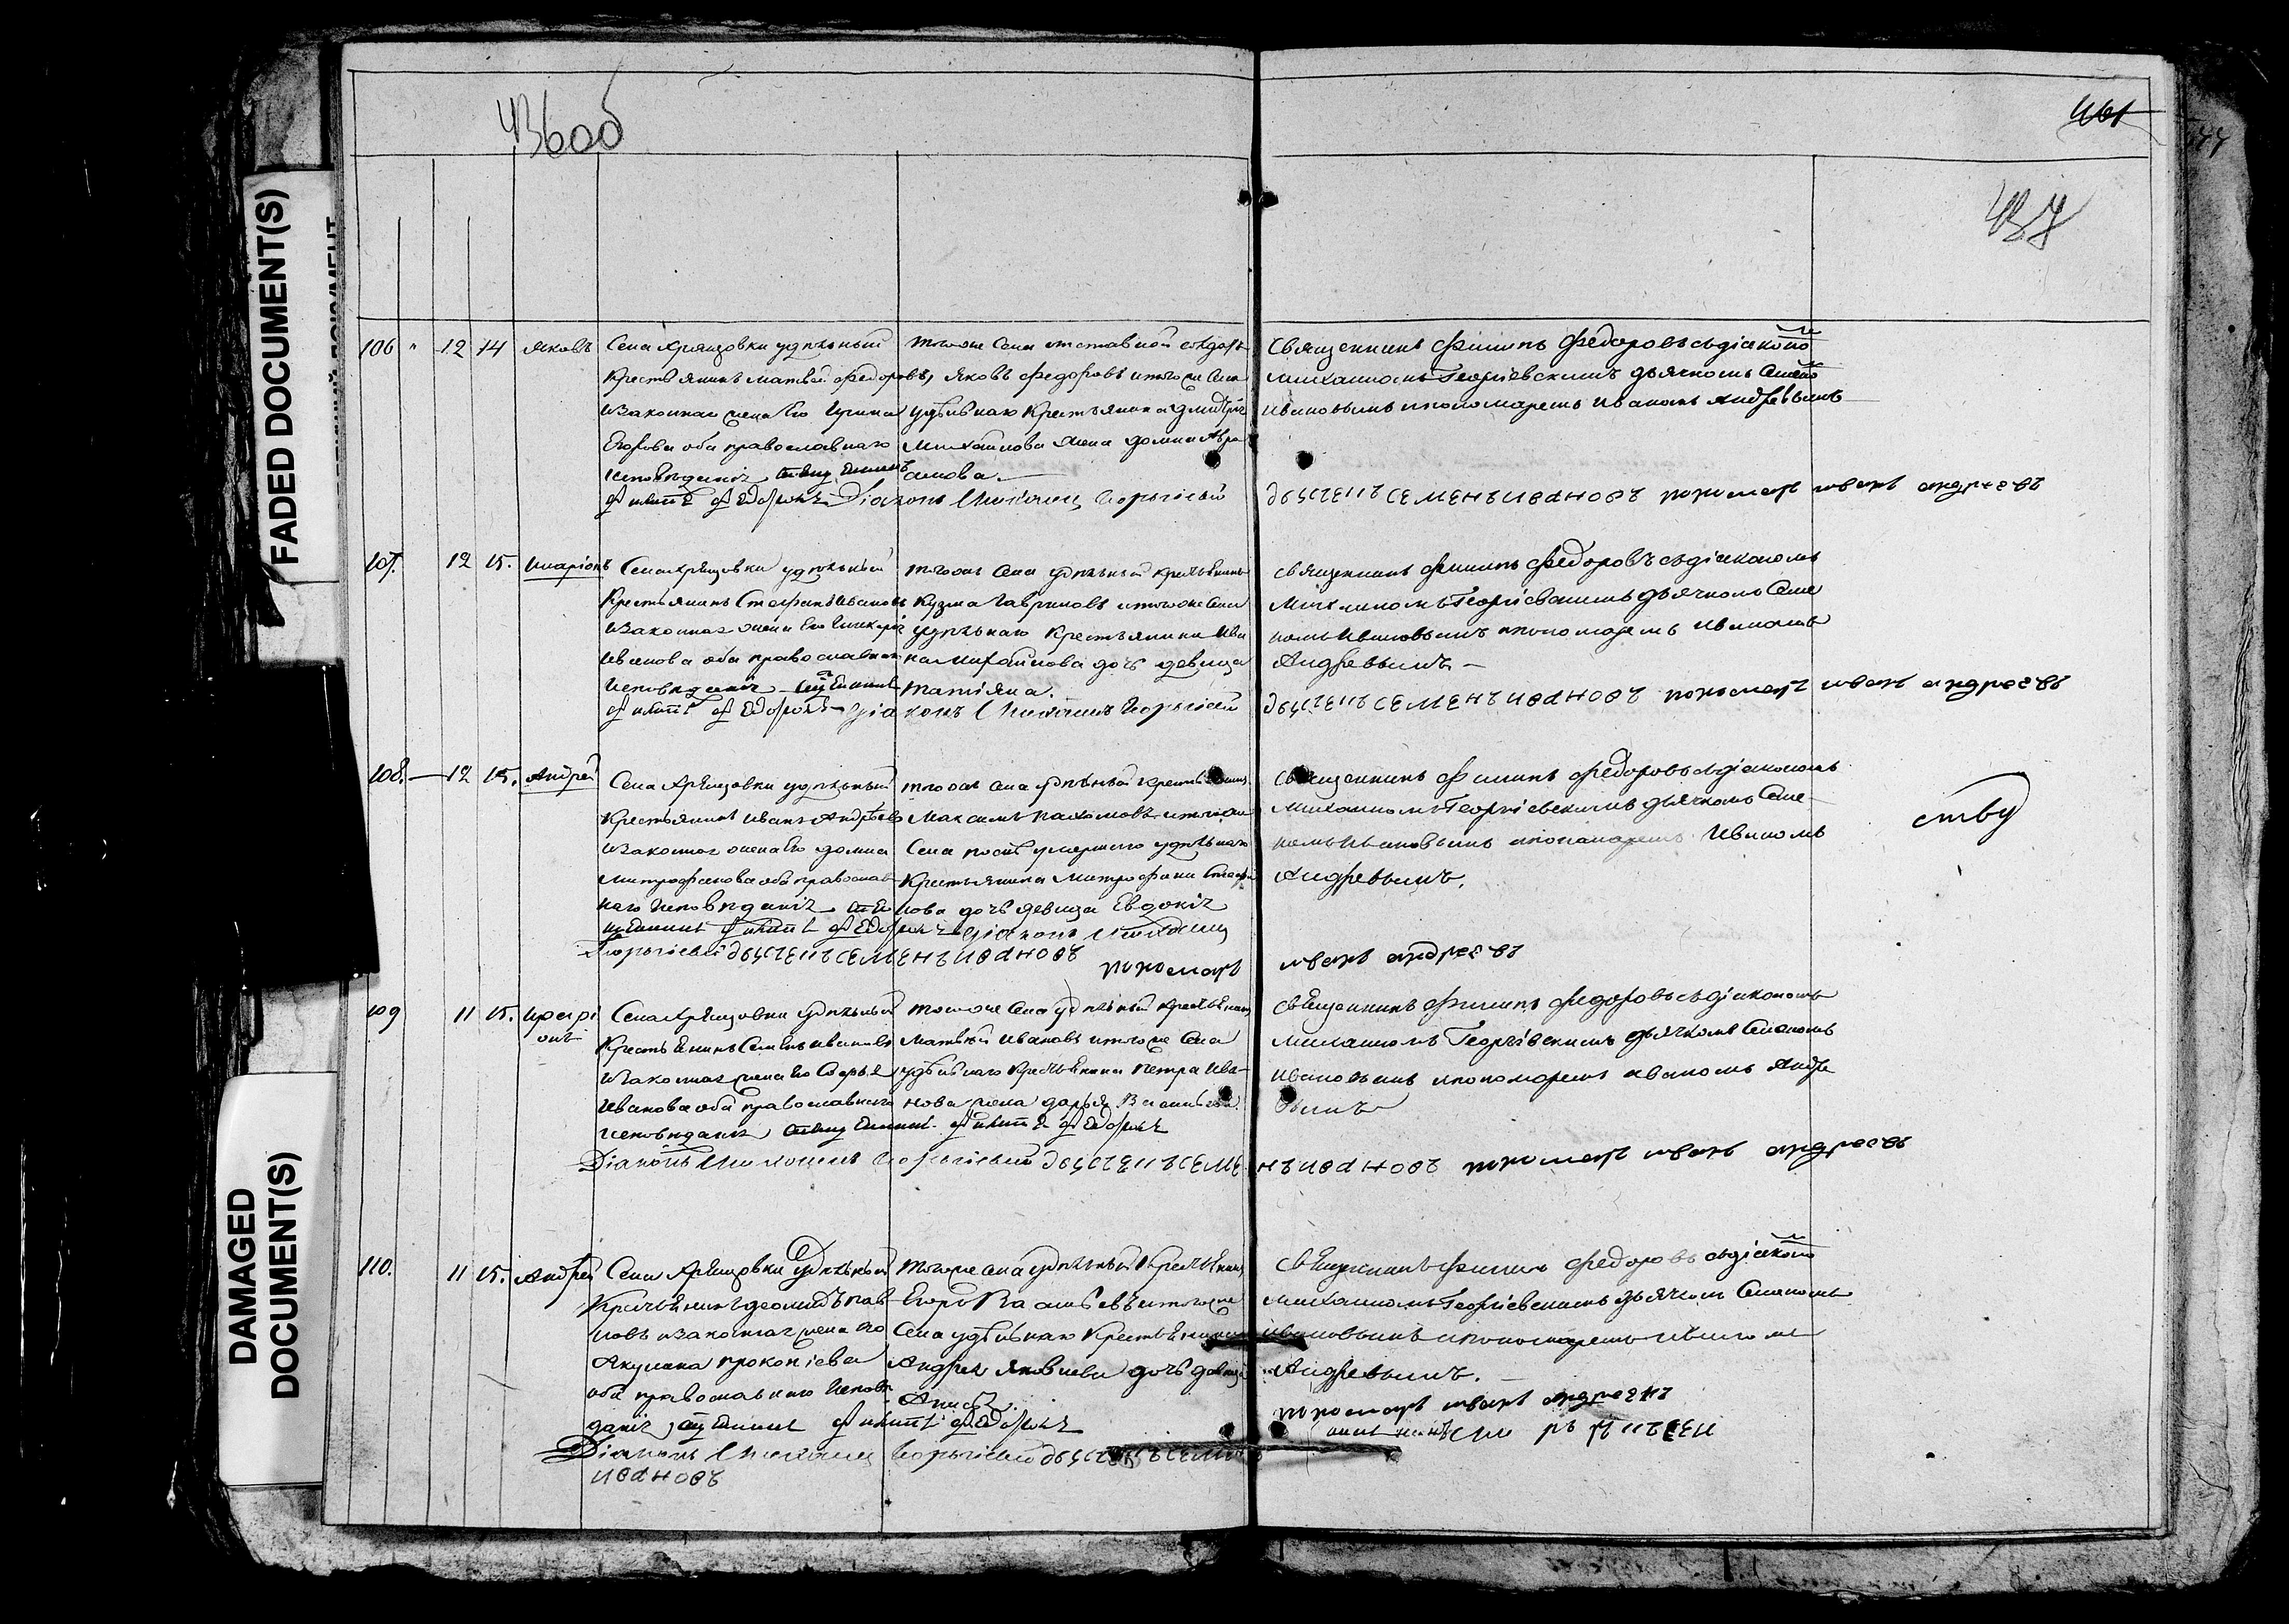 436об
461
437
FADED DOCUMENT(S)
DAMAGED
DOCUMENT(S)
106 " 12 14 Яковъ
Села Хрящовки удѣльный
Крестьянинъ Матвей Федоровъ,
и законная жена его Ирина
Егорова оба православнаго
исповѣданія Священникъ
Филиппъ Федоровъ Діаконъ Михаилъ Георгіевскій
тогоже Села отставной солдатъ
Яковъ Федоровъ и тогоже Села
удѣльнаго Крестьянина Дмитрія
Михайлова жена Домна Авра
амова.
Священникъ Филиппъ Федоровъ съ діакономъ
Михаиломъ Георгіевскимъ дьячкомъ Семеномъ
Ивановымъ и пономаремъ Иваномъ Андреевымъ
дьячекъ Семенъ Ивановъ пономарь иванъ андреевъ
107. 12 15. Иларіонъ
Села Хрящовки удѣльный
Крестьянинъ Стефанъ Ивановъ
и законная жена его Гликерія
Иванова оба православнаго
исповѣданія Священникъ
Филиппъ Федоровъ Діаконъ Михаилъ Георгіевскій
тогоже Села удѣльный крестьянинъ
Кузма Гавриловъ и тогоже Села
удѣльнаго Крестьянина Ива
на Михайлова дочь девица
Татіяна.
Священникъ Филиппъ Федоровъ съ діакономъ
Михаиломъ Георгіевскимъ дьячкомъ Семе
номъ Ивановымъ и пономаремъ Иваномъ
Андревымъ
дьячекъ Семенъ Ивановъ пономарь иванъ андреевъ
108. 12 15. Андрей
Села Хрящовки удѣльный
Крестьянинъ Иванъ Андреевъ
и законная жена его Домна
Митрофанова оба православ
наго исповѣданія Свя
щенникъ Филиппъ Федоровъ Діаконъ Михаилъ
Георгіевскій дьячекъ Семенъ Ивановъ
тогоже села удѣльный крестьянинъ
Максимъ Пахомовъ и тогоже
Села после умершаго удѣльнаго
Крестьянина Митрофана Стефа
нова дочь девица Евдокія
пономарь иванъ андреевъ
Священникъ Филиппъ Федоровъ съ діакономъ
Михаиломъ Георгіевскимъ дьячкомъ Семе
номъ Ивановымъ и пономаремъ Иваномъ
Андревымъ.
109 11 15.
Села Хрящовки удѣльный
Крестьянинъ Семенъ Ивановъ
и законная жена его Софья
Иванова оба православнаго
исповѣданія Священникъ Филиппъ Федоровъ
Діаконъ Михаилъ Георгіевскій дьячекъ Семе
нъ Ивановъ пономарь иванъ андреевъ
тогоже Села удѣльный крестьянинъ
Матвей Ивановъ и тогоже Села
удѣльнаго Крестьянина Петра Ива
нова жена Дарья Васильева
Священникъ Филиппъ Федоровъ съ діакономъ
Михаиломъ Георгіевскимъ дьячкомъ Семеномъ
Ивановымъ и пономаремъ Иваномъ Андре
вымъ
110. 11 15. Андрей
Села Хрящовки удѣльный
Крестьянинъ Деомидъ Пав
ловъ и законная жена его
Акулина Прокопіева
оба православнаго исповѣ
данія Священникъ Филиппъ Федоровъ
Діаконъ Михаилъ Георгіевскій дьячекъ Семенъ
Ивановъ
тогоже села удѣльный Крестьянинъ
Села удѣльнаго Крестьянина
Андрея Яковлева дочь девица
Священникъ Филиппъ Федоровъ съ діакономъ
Михаиломъ Георгіевскимъ дьячкомъ Семеномъ
Ивановымъ и пономаремъ Иваномъ
Андревымъ.
пономарь иванъ андреевъ